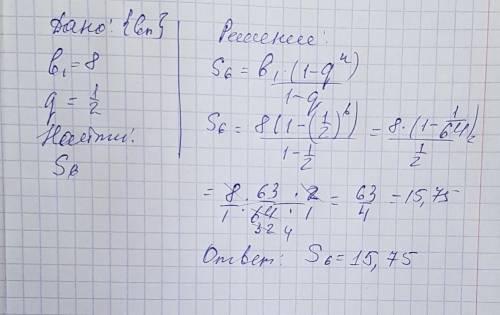 Дано: {bn}
b₁ = 8
q = 1/2
Найти:
S₆
Решение:
S₆ = b₁·(1-qⁿ)/1-q
S₆ = 8(1-(1/2)⁶)/1-1/2 = 8·(1-1/64)/1/2 =
= 8·63·2/1·64·1 = 63/4 = 15,75
32 4
Ответ: S₆ = 15,75